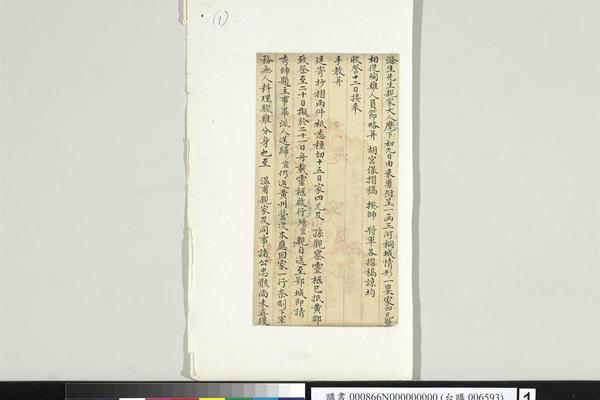 (1)
滌生先生親家大人麾下初九日由來勇附呈一函三河桐城情形一稟家四兄暨
相從殉難人員節略并 胡宮保摺稿 揆帥 將軍各摺稿諒均
收詧十二日接奉
手教并
廷寄抄摺兩件祇悉種切十五日家四兄及 孫觀察靈櫬已抵黃郡
致祭至二十日擬於二十一日舟載靈櫬啟行 親自送至鄂城即請
秀帥題主事畢派人送歸 仍返黃州營次本應回家一行奈刻下軍
務無人料理驟難分身也至 溫甫親家及同事諸公忠骸尚未尋獲
購書 000866N000000000 (台購 006593)
1